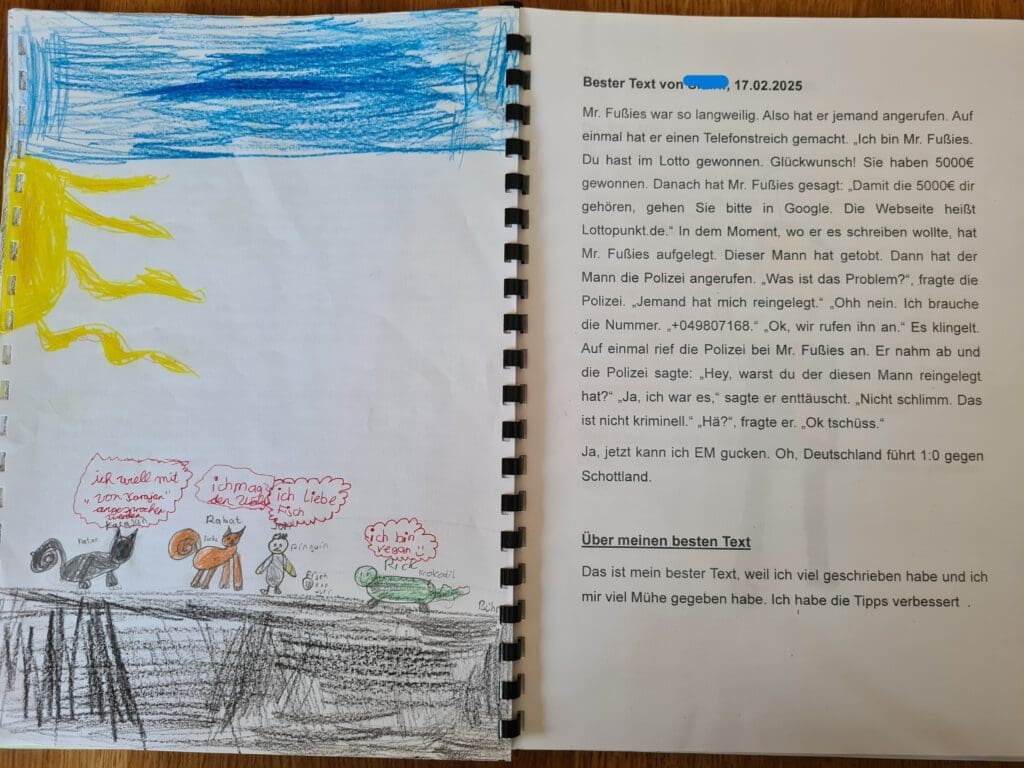 ich well mit
"von Karajan"
angesprochen
werden
Karajan
Katze
ich mag
den Wald
Rabat
Fuchs
ich liebe
Fisch
Pinguin
Fisch
ich bin
vegan
Rick
Krokodil
Bester Text von , 17.02.2025
Mr. Fußies war so langweilig. Also hat er jemand angerufen. Auf
einmal hat er einen Telefonstreich gemacht. „Ich bin Mr. Fußies.
Du hast im Lotto gewonnen. Glückwunsch! Sie haben 5000€
gewonnen. Danach hat Mr. Fußies gesagt: „Damit die 5000€ dir
gehören, gehen Sie bitte in Google. Die Webseite heißt
Lottopunkt.de.“ In dem Moment, wo er es schreiben wollte, hat
Mr. Fußies aufgelegt. Dieser Mann hat getobt. Dann hat der
Mann die Polizei angerufen. „Was ist das Problem?“, fragte die
Polizei. „Jemand hat mich reingelegt.“ „Ohh nein. Ich brauche
die Nummer. „+049807168.“ „Ok, wir rufen ihn an.“ Es klingelt.
Auf einmal rief die Polizei bei Mr. Fußies an. Er nahm ab und
die Polizei sagte: „Hey, warst du der diesen Mann reingelegt
hat?“ „Ja, ich war es,“ sagte er enttäuscht. „Nicht schlimm. Das
ist nicht kriminell.“ „Hä?“, fragte er. „Ok tschüss.“
Ja, jetzt kann ich EM gucken. Oh, Deutschland führt 1:0 gegen
Schottland.
Über meinen besten Text
Das ist mein bester Text, weil ich viel geschrieben habe und ich
mir viel Mühe gegeben habe. Ich habe die Tipps verbessert .